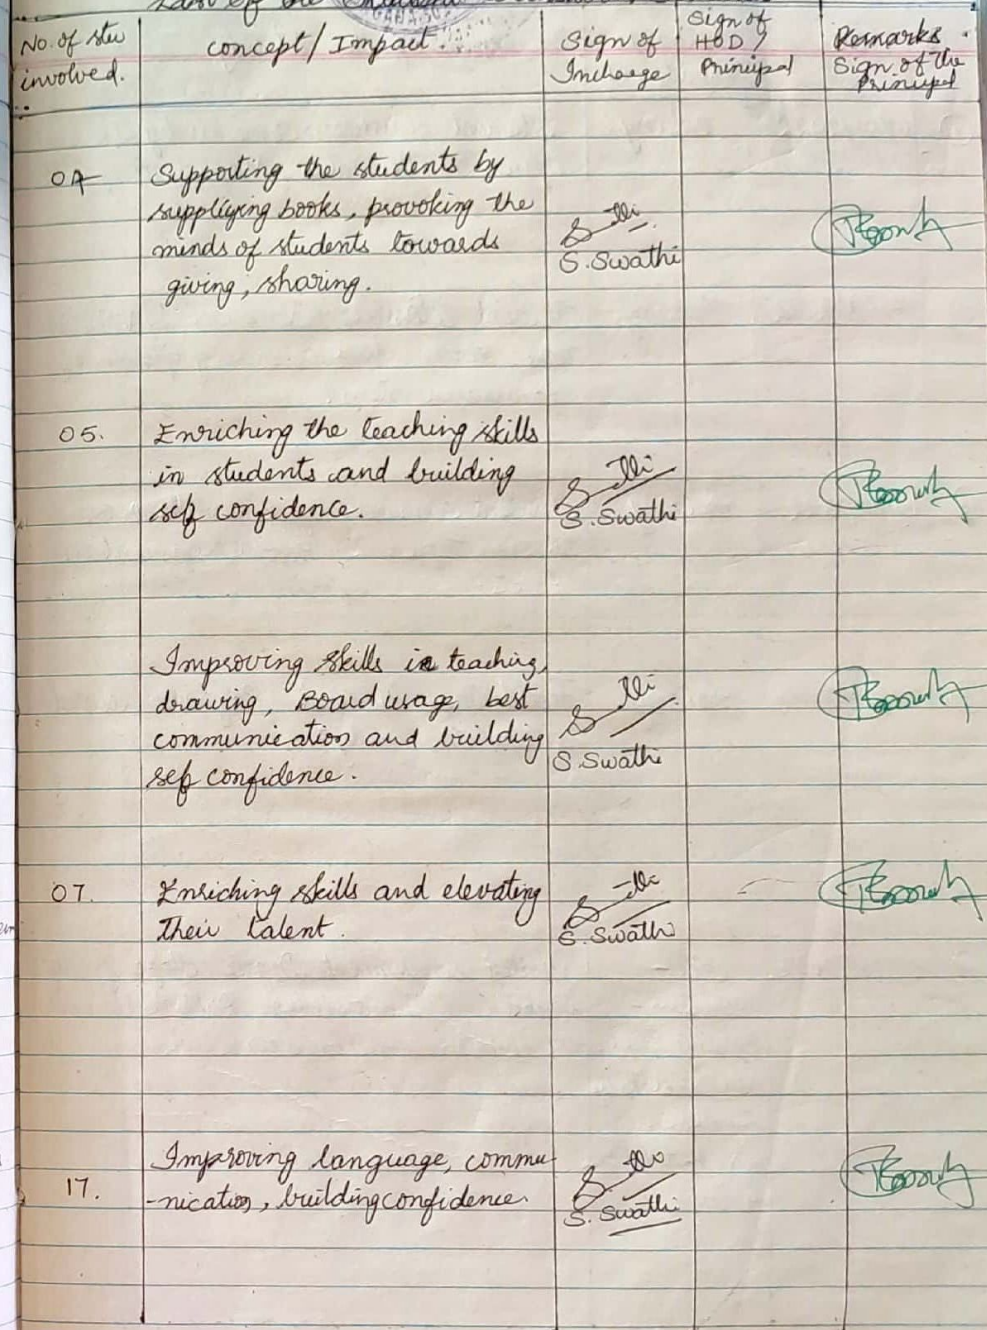 List of the
No. of stu
involved.
concept / Impact.
Sign of
Incharge
Sign of
HOD /
Principal
Remarks
Sign of the
Principal
Supporting the students by
supplying books, provoking the
minds of students towards
giving, sharing.
S. Swathi
05.
Enriching the teaching skills
in students and building
self confidence.
S. Swathi
Improving skills in teaching,
drawing, Board usage, best
communication and building
self confidence.
S. Swathi
07.
Enriching skills and elevating
their talent.
S. Swathi
17.
Improving language, commu-
-nication, building confidence.
S. Swathi